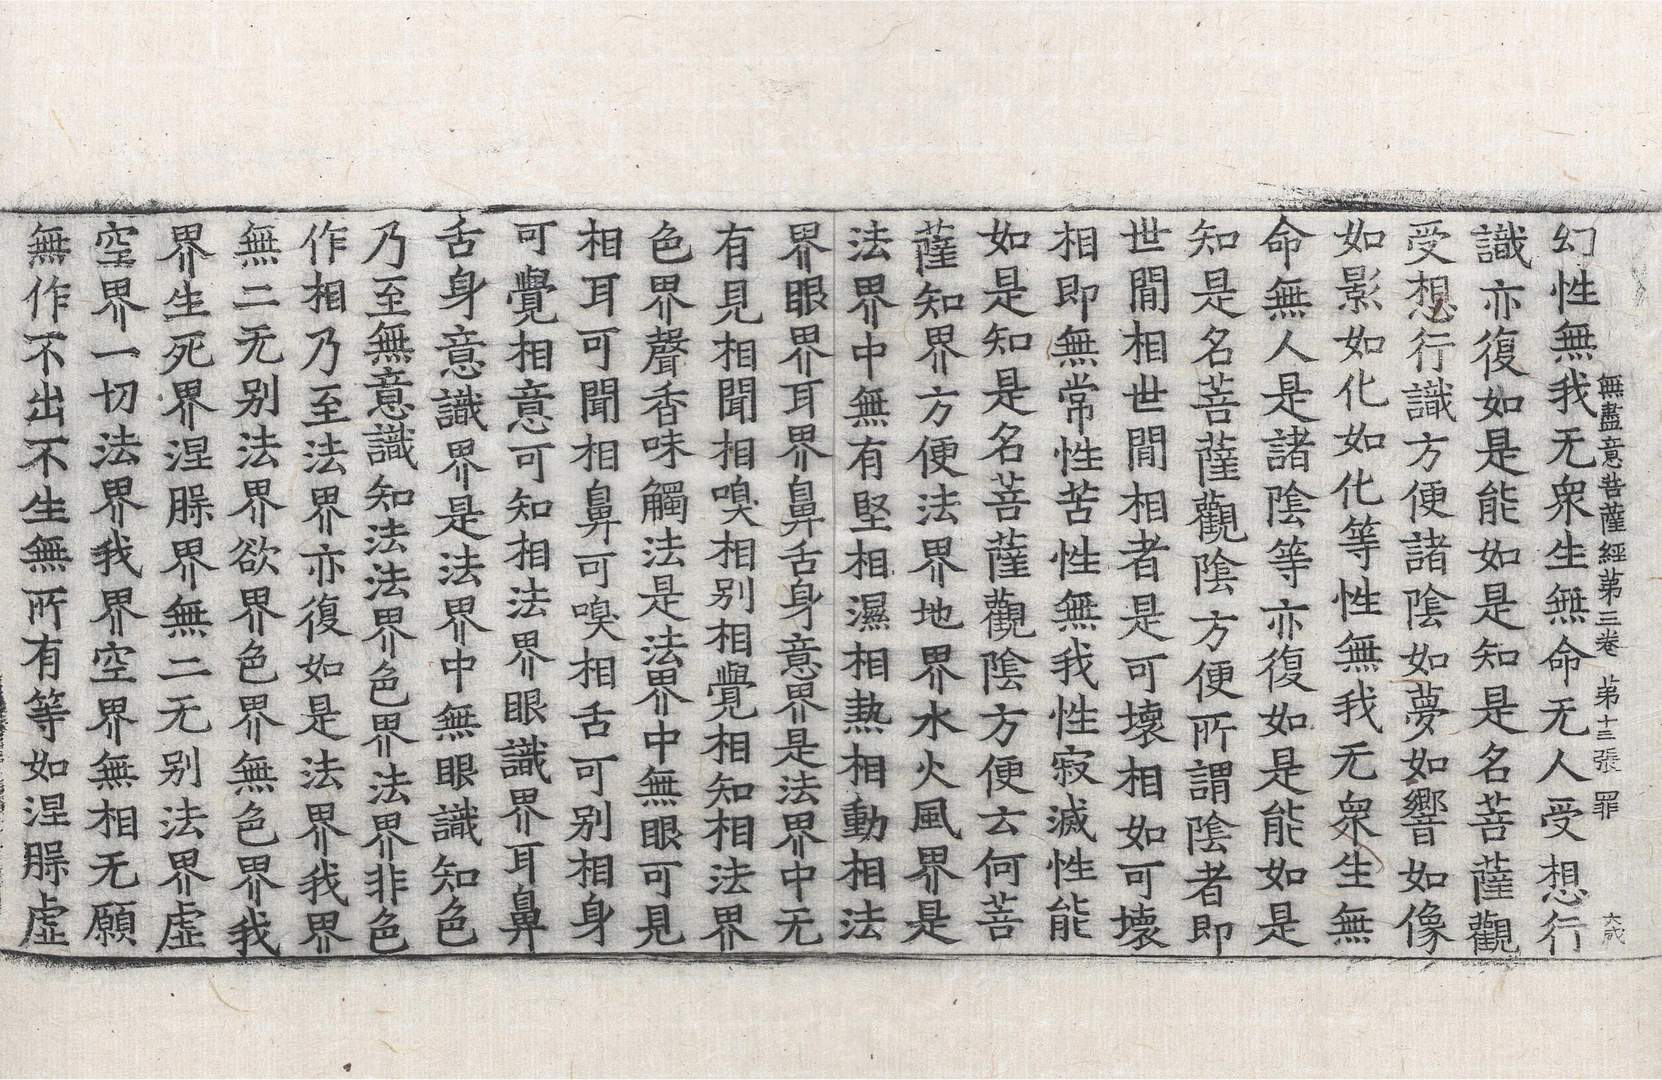 無盡意菩薩經第三卷 第十三張 罪 大成
幻性無我无衆生無命无人受想行
識亦復如是能如是知是名菩薩觀
受想行識方便諸陰如夢如響如像
如影如化如化等性無我无衆生無
命無人是諸陰等亦復如是能如是
知是名菩薩觀陰方便所謂陰者即
世閒相世閒相者是可壞相如可壞
相即無常性苦性無我性寂滅性能
如是知是名菩薩觀陰方便云何菩
薩知界方便法界地界水火風界是
法界中無有堅相濕相熱相動相法
界眼界耳界鼻舌身意界是法界中无
有見相聞相嗅相别相覺相知相法界
色界聲香味觸法是法界中無眼可見
相耳可聞相鼻可嗅相舌可别相身
可覺相意可知相法界眼識界耳鼻
舌身意識界是法界中無眼識知色
乃至無意識知法法界色界法界非色
作相乃至法界亦復如是法界我界
無二无别法界欲界色界無色界我
界生死界涅槃界無二无别法界虛
空界一切法界我界空界無相无願
無作不出不生無所有等如涅槃虛